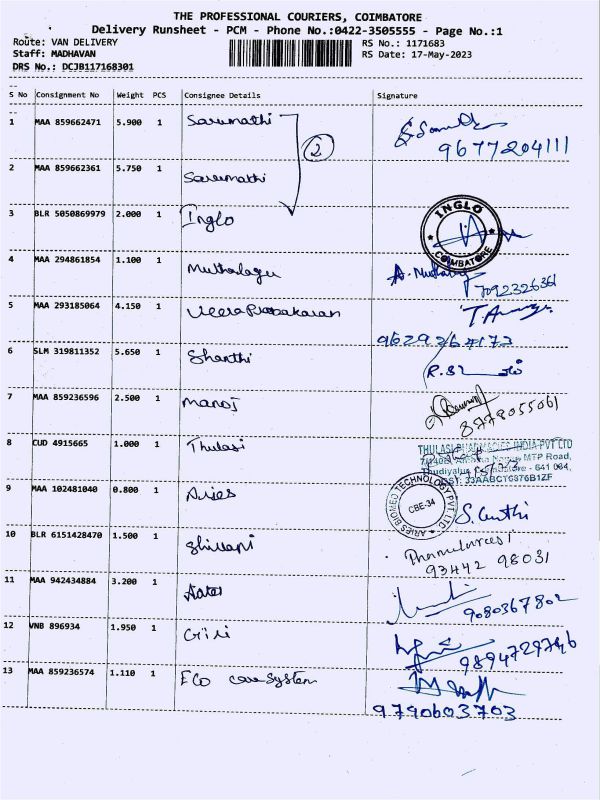 THE PROFESSIONAL COURIERS, COIMBATORE
Delivery Runsheet - PCM - Phone No.:0422-3505555 - Page No.:1
Route: VAN DELIVERY RS No.: 1171683
Staff: MADHAVAN RS Date: 17-May-2023
DRS No.: DCJB117168301
S No Consignment No Weight PCS Consignee Details Signature
1 MAA 859662471 5.900 1 Sarumathi
9677204111
2
2 MAA 859662361 5.750 1 Sarumathi
3 BLR 5050869979 2.000 1 Inglo INGLO COIMBATORE
4 MAA 294861854 1.100 1 Muthalagu A. Muthalagu
7092326361
5 MAA 293185064 4.150 1 Veeraprabakaran
6 SLM 319811352 5.650 1 Shanthi
7 MAA 859236596 2.500 1 Manoj
8779055061
8 CUD 4915665 1.000 1 Thulasi THULASI PHARMACIES INDIA PVT LTD
MTP Road,
- 641 034,
GST: 33AABCT6376B1ZF
9 MAA 102481040 0.800 1 Aries ARIES BIOMED TECHNOLOGY PVT. LTD. CBE-34
10 BLR 6151428470 1.500 1 Shivani
93442 98031
11 MAA 942434884 3.200 1
9080367802
12 VNB 896934 1.950 1 Giri
9894729746
13 MAA 859236574 1.110 1 ECO care System
9790603703